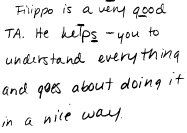 Filippo is a very good
TA. He helps - you to
understand everything
and goes about doing it
in a nice way.